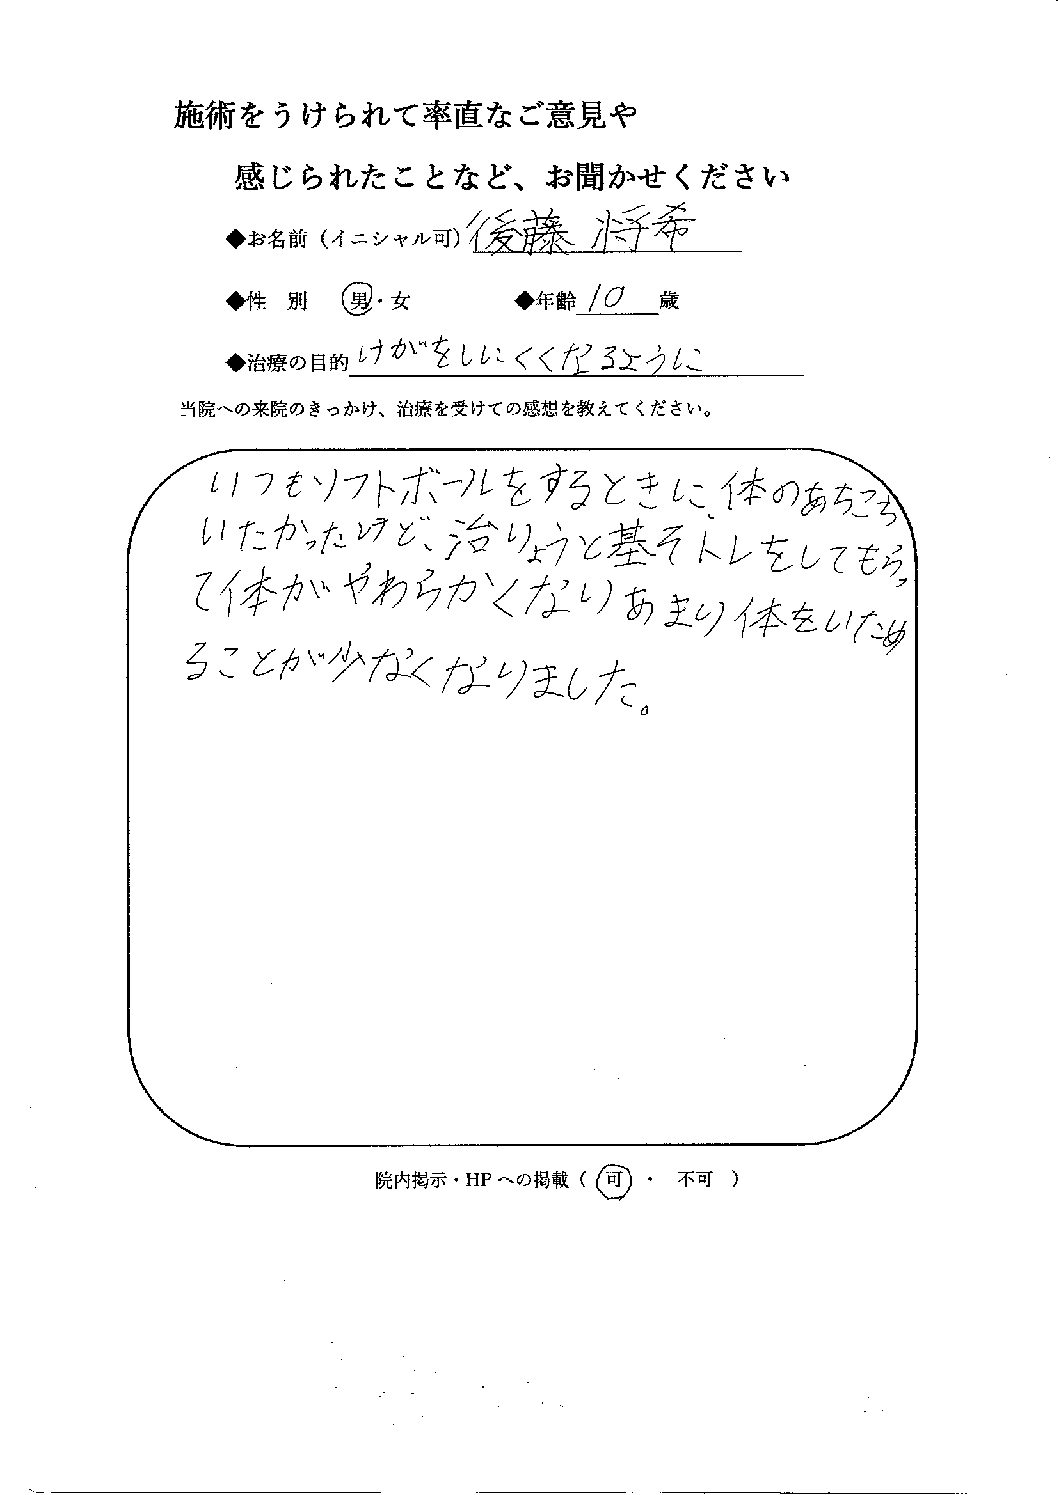 施術をうけられて率直なご意見や
感じられたことなど、お聞かせください
◆お名前（イニシャル可）後藤 将希
◆性 別 男・女 ◆年齢 10 歳
◆治療の目的 けがをしにくくなるように
当院への来院のきっかけ、治療を受けての感想を教えてください。
いつもソフトボールをするときに、体のあちこち
いたかったけど、治りょうと基そトレをしてもらっ
て体がやわらかくなりあまり体をいため
ることが少なくなりました。
院内掲示・HPへの掲載（ 可 ・ 不可 ）